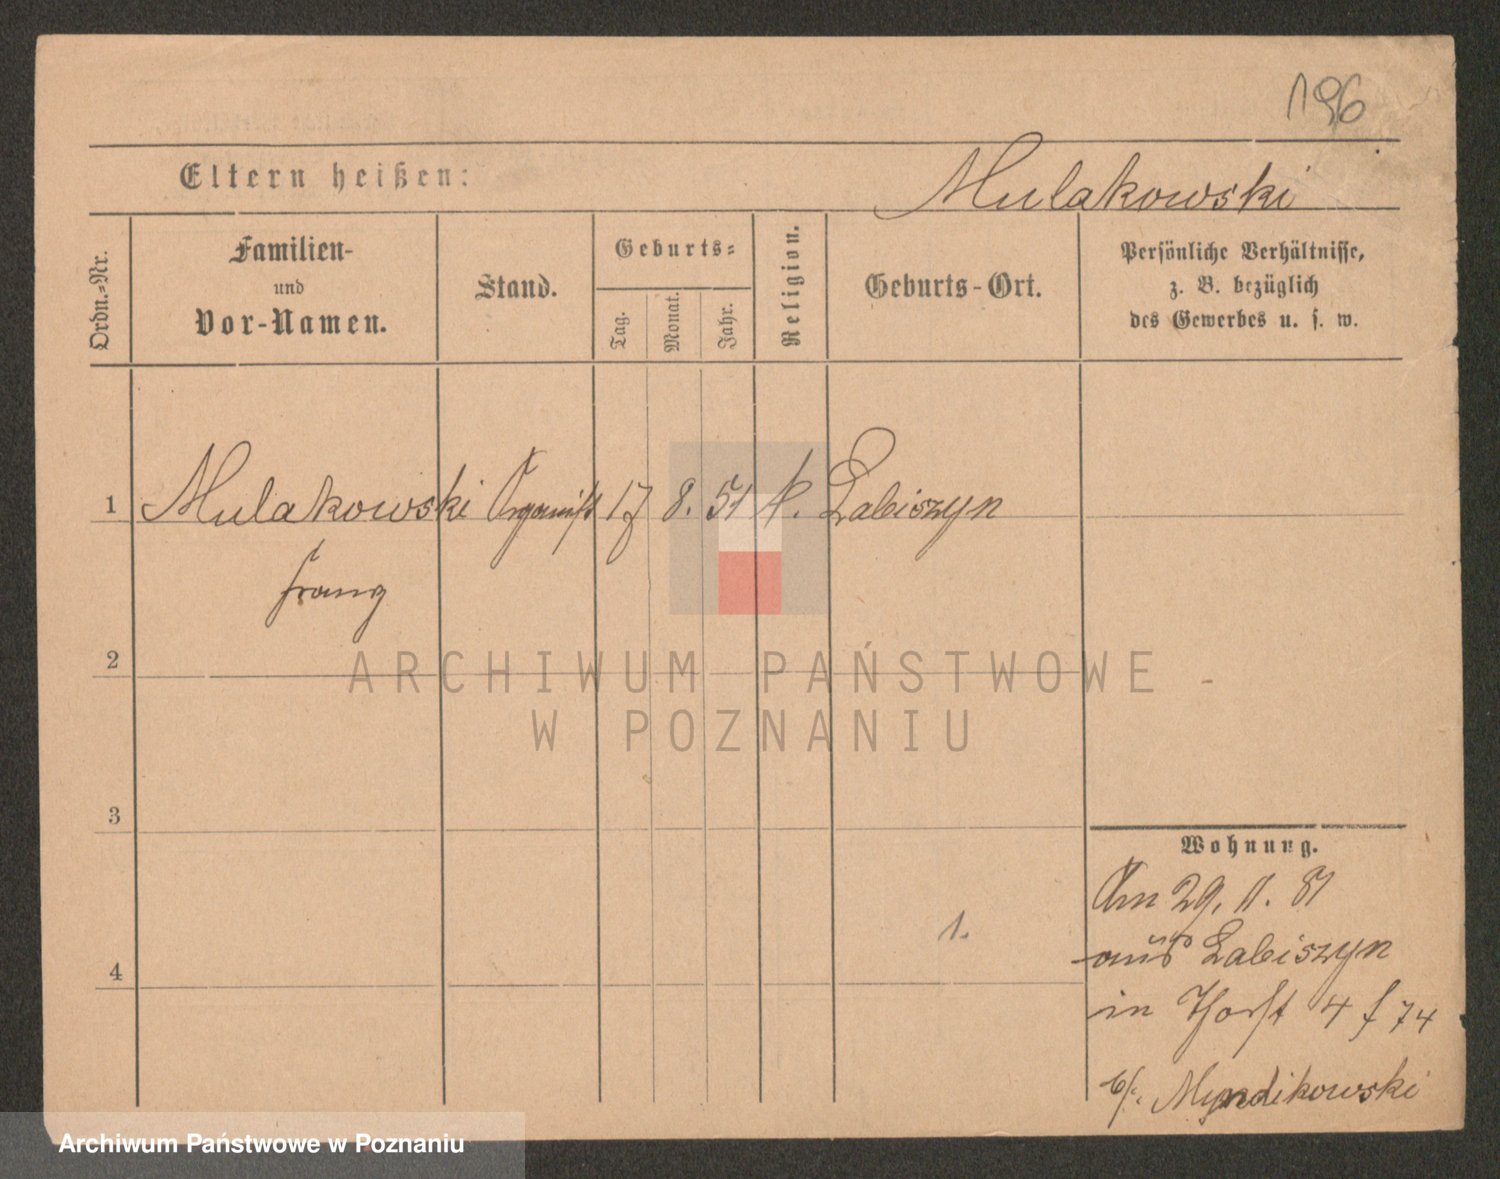 196
Eltern heißen:
Mulakowski
Ordn.=Nr.
Familien-
und
Vor-Namen.
Stand.
Geburts=
Tag.
Monat.
Jahr.
Religion.
Geburts-Ort.
Persönliche Verhältnisse,
z. B. bezüglich
des Gewerbes u. s. w.
1 Mulakowski Organist 17 8. 51 k. Labiszyn
Franz
2
ARCHIWUM PAŃSTWOWE
W POZNANIU
3
Wohnung.
Am 29. 11. 81
1.
aus Labiszyn
4
in Thorst 4 f 74
b/. Myndikowski
Archiwum Państwowe w Poznaniu